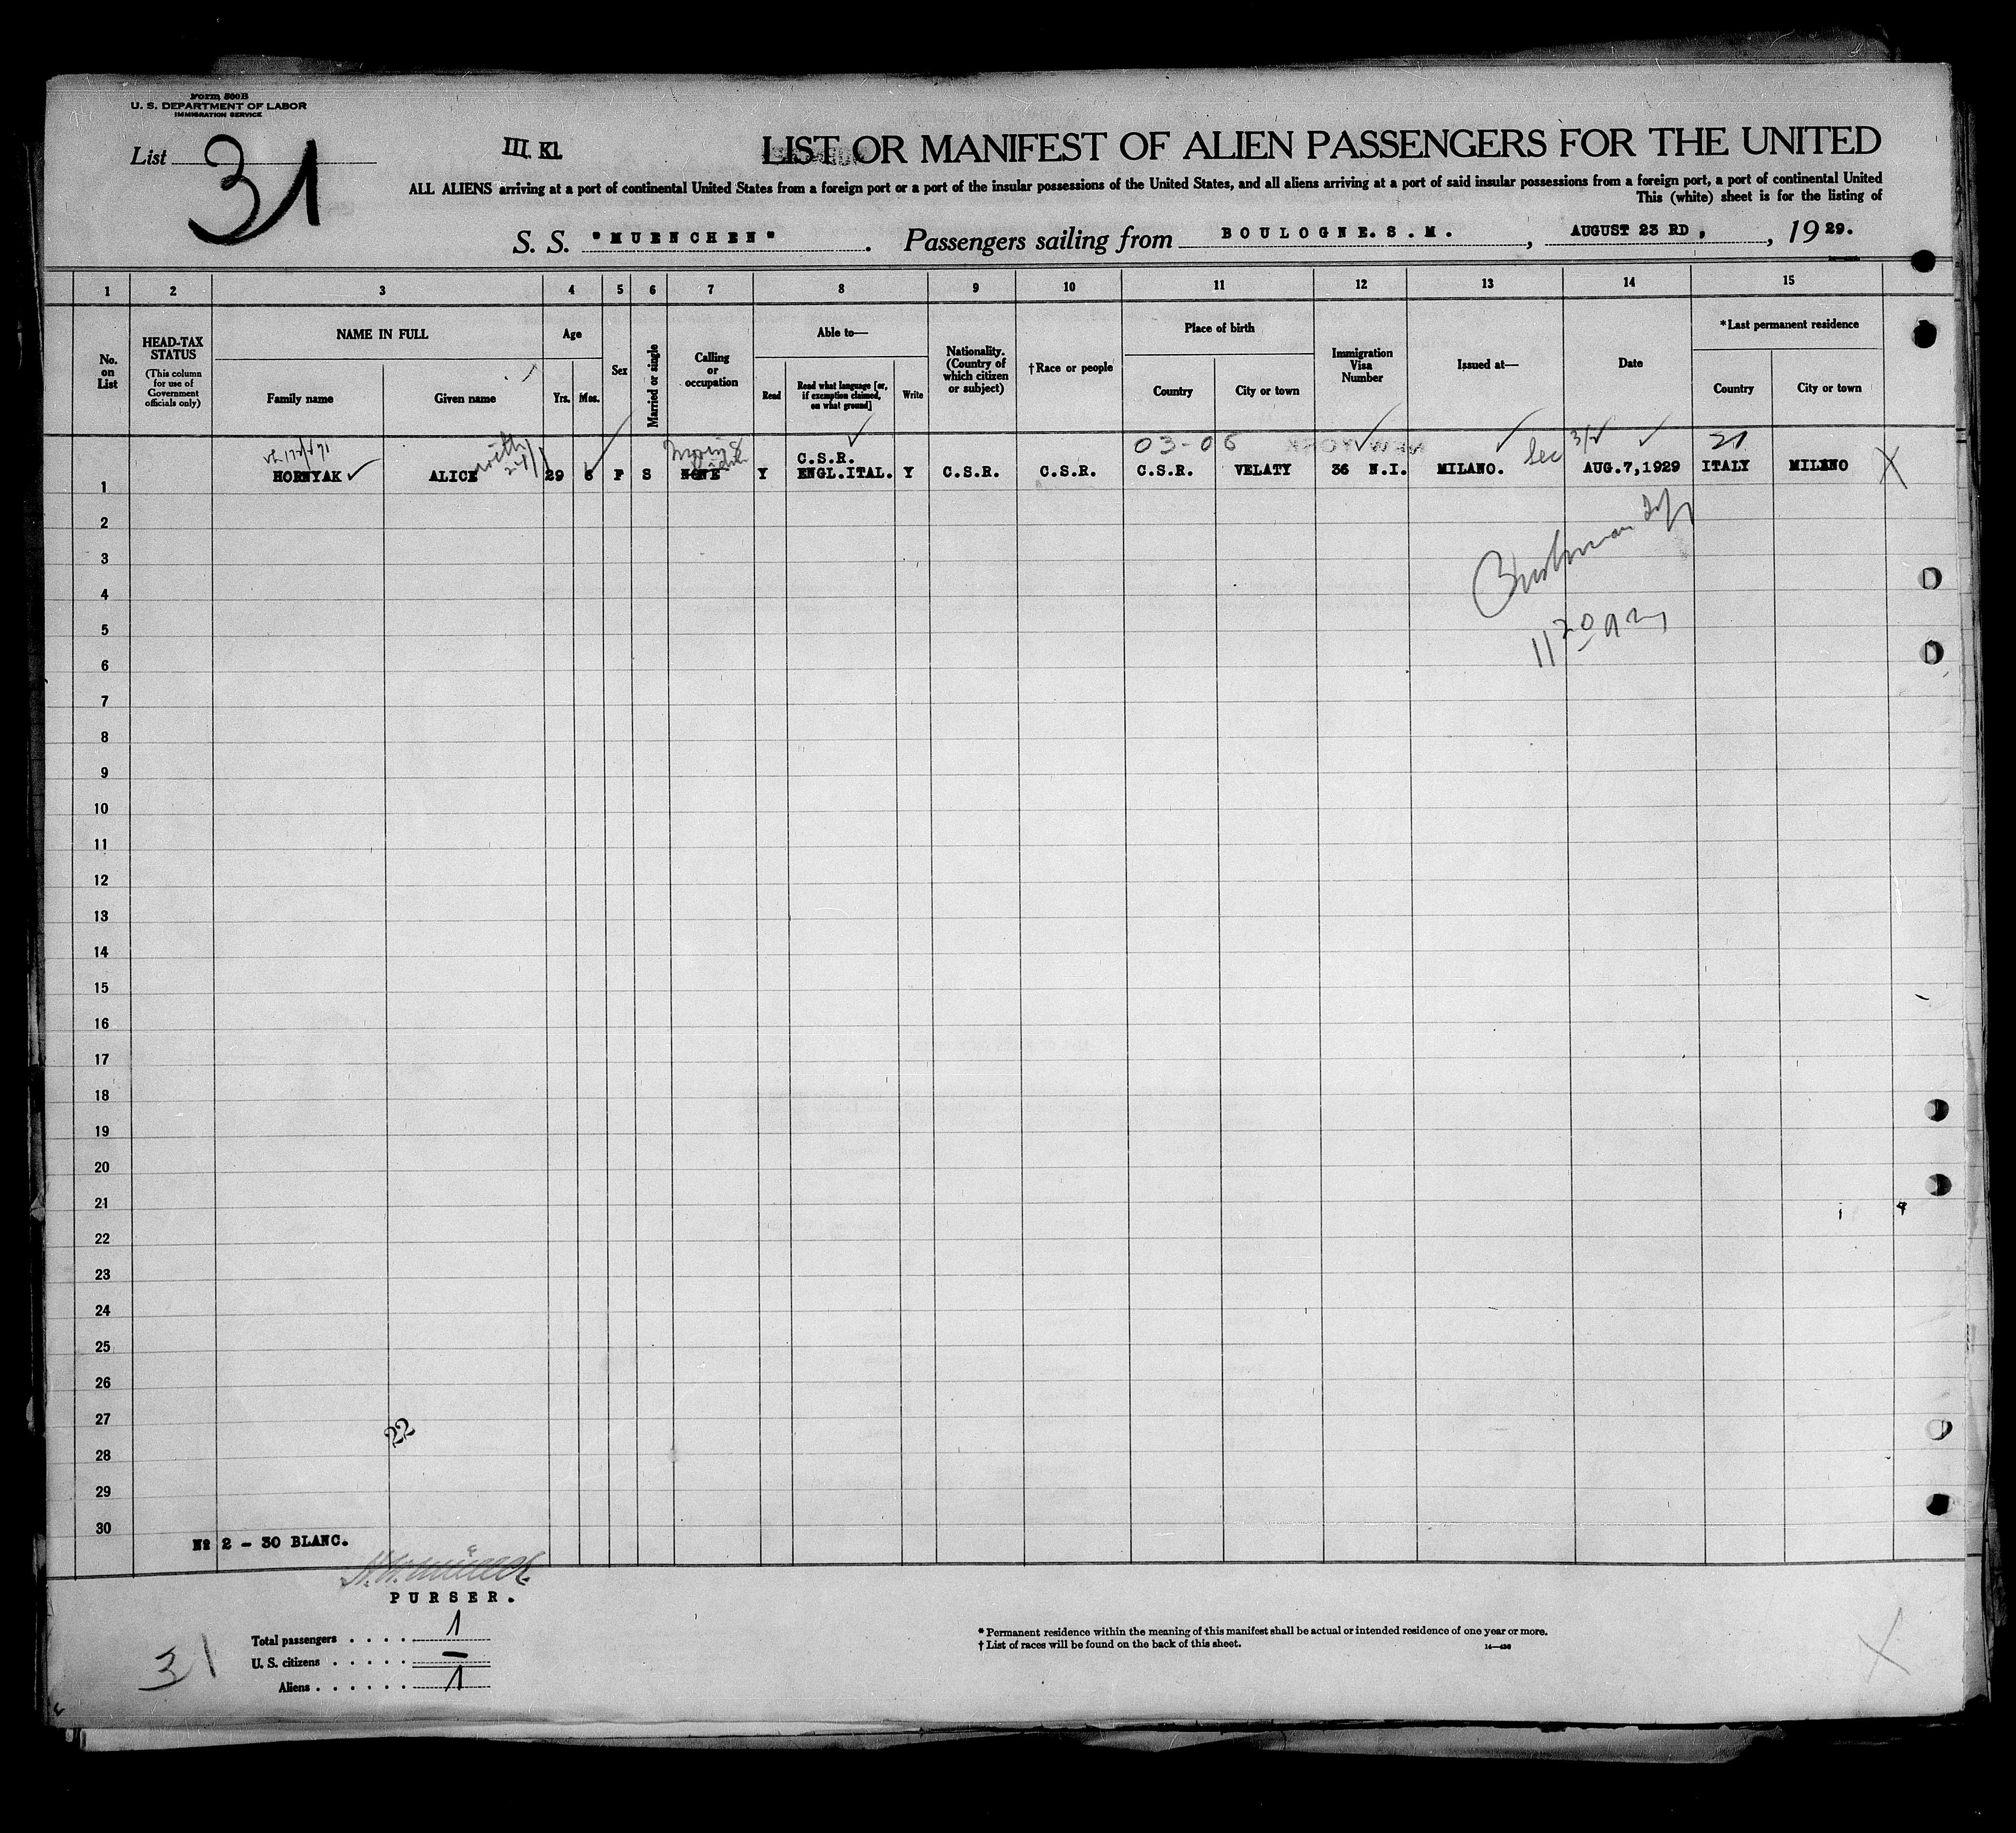 Form 500B
U. S. DEPARTMENT OF LABOR
IMMIGRATION SERVICE
List 31
III. Kl.
LIST OR MANIFEST OF ALIEN PASSENGERS FOR THE UNITED
ALL ALIENS arriving at a port of continental United States from a foreign port or a port of the insular possessions of the United States, and all aliens arriving at a port of said insular possessions from a foreign port, a port of continental United
This (white) sheet is for the listing of
S. S. "MUENCHEN". Passengers sailing from BOULOGNE.S.M., AUGUST 23 RD, , 1929.
1 2 3 4 5 6 7 8 9 10 11 12 13 14 15
No. on List
HEAD-TAX STATUS
(This column for use of Government officials only)
NAME IN FULL
Family name
Given name
Age
Yrs.
Mos.
Sex
Married or single
Calling or occupation
Able to—
Read
Read what language [or, if exemption claimed, on what ground]
Write
Nationality. (Country of which citizen or subject)
†Race or people
Place of birth
Country
City or town
Immigration Visa Number
Issued at—
Date
*Last permanent residence
Country
City or town
03-06
NEW YORK
21
C.S.R.
1 HORNYAK ALICE 29 6 F S NONE Y ENGL.ITAL. Y C.S.R. C.S.R. C.S.R. VELATY 36 N.I. MILANO. Sec AUG.7,1929 ITALY MILANO X
2
3
4
5
11 20 am
6
7
8
9
10
11
12
13
14
15
16
17
18
19
20
21
22
23
24
25
26
27
22
28
29
30
No 2 - 30 BLANC.
PURSER.
Total passengers . . . . . 1
U. S. citizens . . . . . –
Aliens . . . . . . 1
31
* Permanent residence within the meaning of this manifest shall be actual or intended residence of one year or more.
† List of races will be found on the back of this sheet.
X